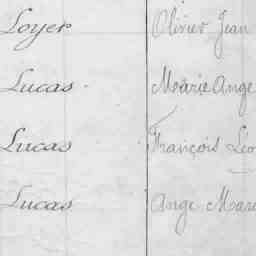 Loyer Olivier Jean
Lucas Marie Ange
Lucas François Léo
Lucas Ange Mari